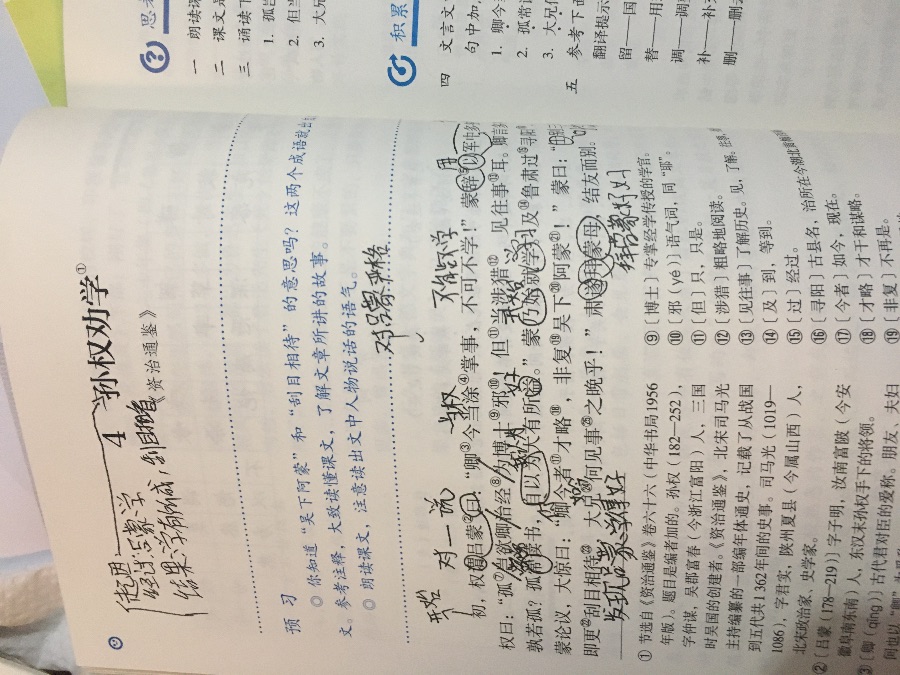 4 孙权劝学①
《资治通鉴》
预习
◎ 你知道“吴下阿蒙”和“刮目相待”的意思吗？这两个成语就出
文。参考注释，大致读懂课文，了解文章所讲的故事。
◎ 朗读课文，注意读出文中人物说话的语气。
初，权谓吕蒙②曰：“卿③今当涂④掌事，不可不学！”蒙辞⑤以军中多
权曰：“孤⑦岂欲卿治经⑧为博士⑨邪⑩！但⑪当涉猎⑫，见往事⑬耳。卿言多
孰若孤？孤常读书，自以为大有所益。”蒙乃始就学。及⑭鲁肃过⑮寻阳
蒙论议，大惊曰：“卿今者⑰才略⑱，非复⑲吴下⑳阿蒙㉑！”蒙曰：“
即更㉒刮目相待㉓，大兄㉔何见事㉕之晚乎！”肃遂拜蒙母，结友而别。
对一说
不能不学
发现吕蒙学得好
① 节选自《资治通鉴》卷六十六（中华书局1956
年版）。题目是编者加的。孙权（182—252），
字仲谋，吴郡富春（今浙江富阳）人，三国
时吴国的创建者。《资治通鉴》，北宋司马光
主持编纂的一部编年体通史，记载了从战国
到五代共1362年间的史事。司马光（1019—
1086），字君实，陕州夏县（今属山西）人，
北宋政治家、史学家。
②〔吕蒙（178—219）〕字子明，汝南富陂（今安
徽阜南东南）人，东汉末孙权手下的将领。
③〔卿（qīng）〕古代君对臣的爱称。朋友、夫妇
⑨〔博士〕专掌经学传授的学官。
⑩〔邪（yé）〕语气词，同“耶”。
⑪〔但〕只，只是。
⑫〔涉猎〕粗略地阅读。
⑬〔见往事〕了解历史。见，了解。
⑭〔及〕到，等到。
⑮〔过〕经过。
⑯〔寻阳〕古县名，治所在今湖北黄梅
⑰〔今者〕如今，现在。
⑱〔才略〕才干和谋略。
⑲〔非复〕不再是。
思考
一 朗读课
二 课文
三 诵读下
1. 孤岂
2. 但当
3. 大兄
积累
四 文言文
句中加
1. 卿今
2. 孤常
3. 大兄
五 参考下面
翻译提示
留——国
替——用
调——调
补——补
删——删